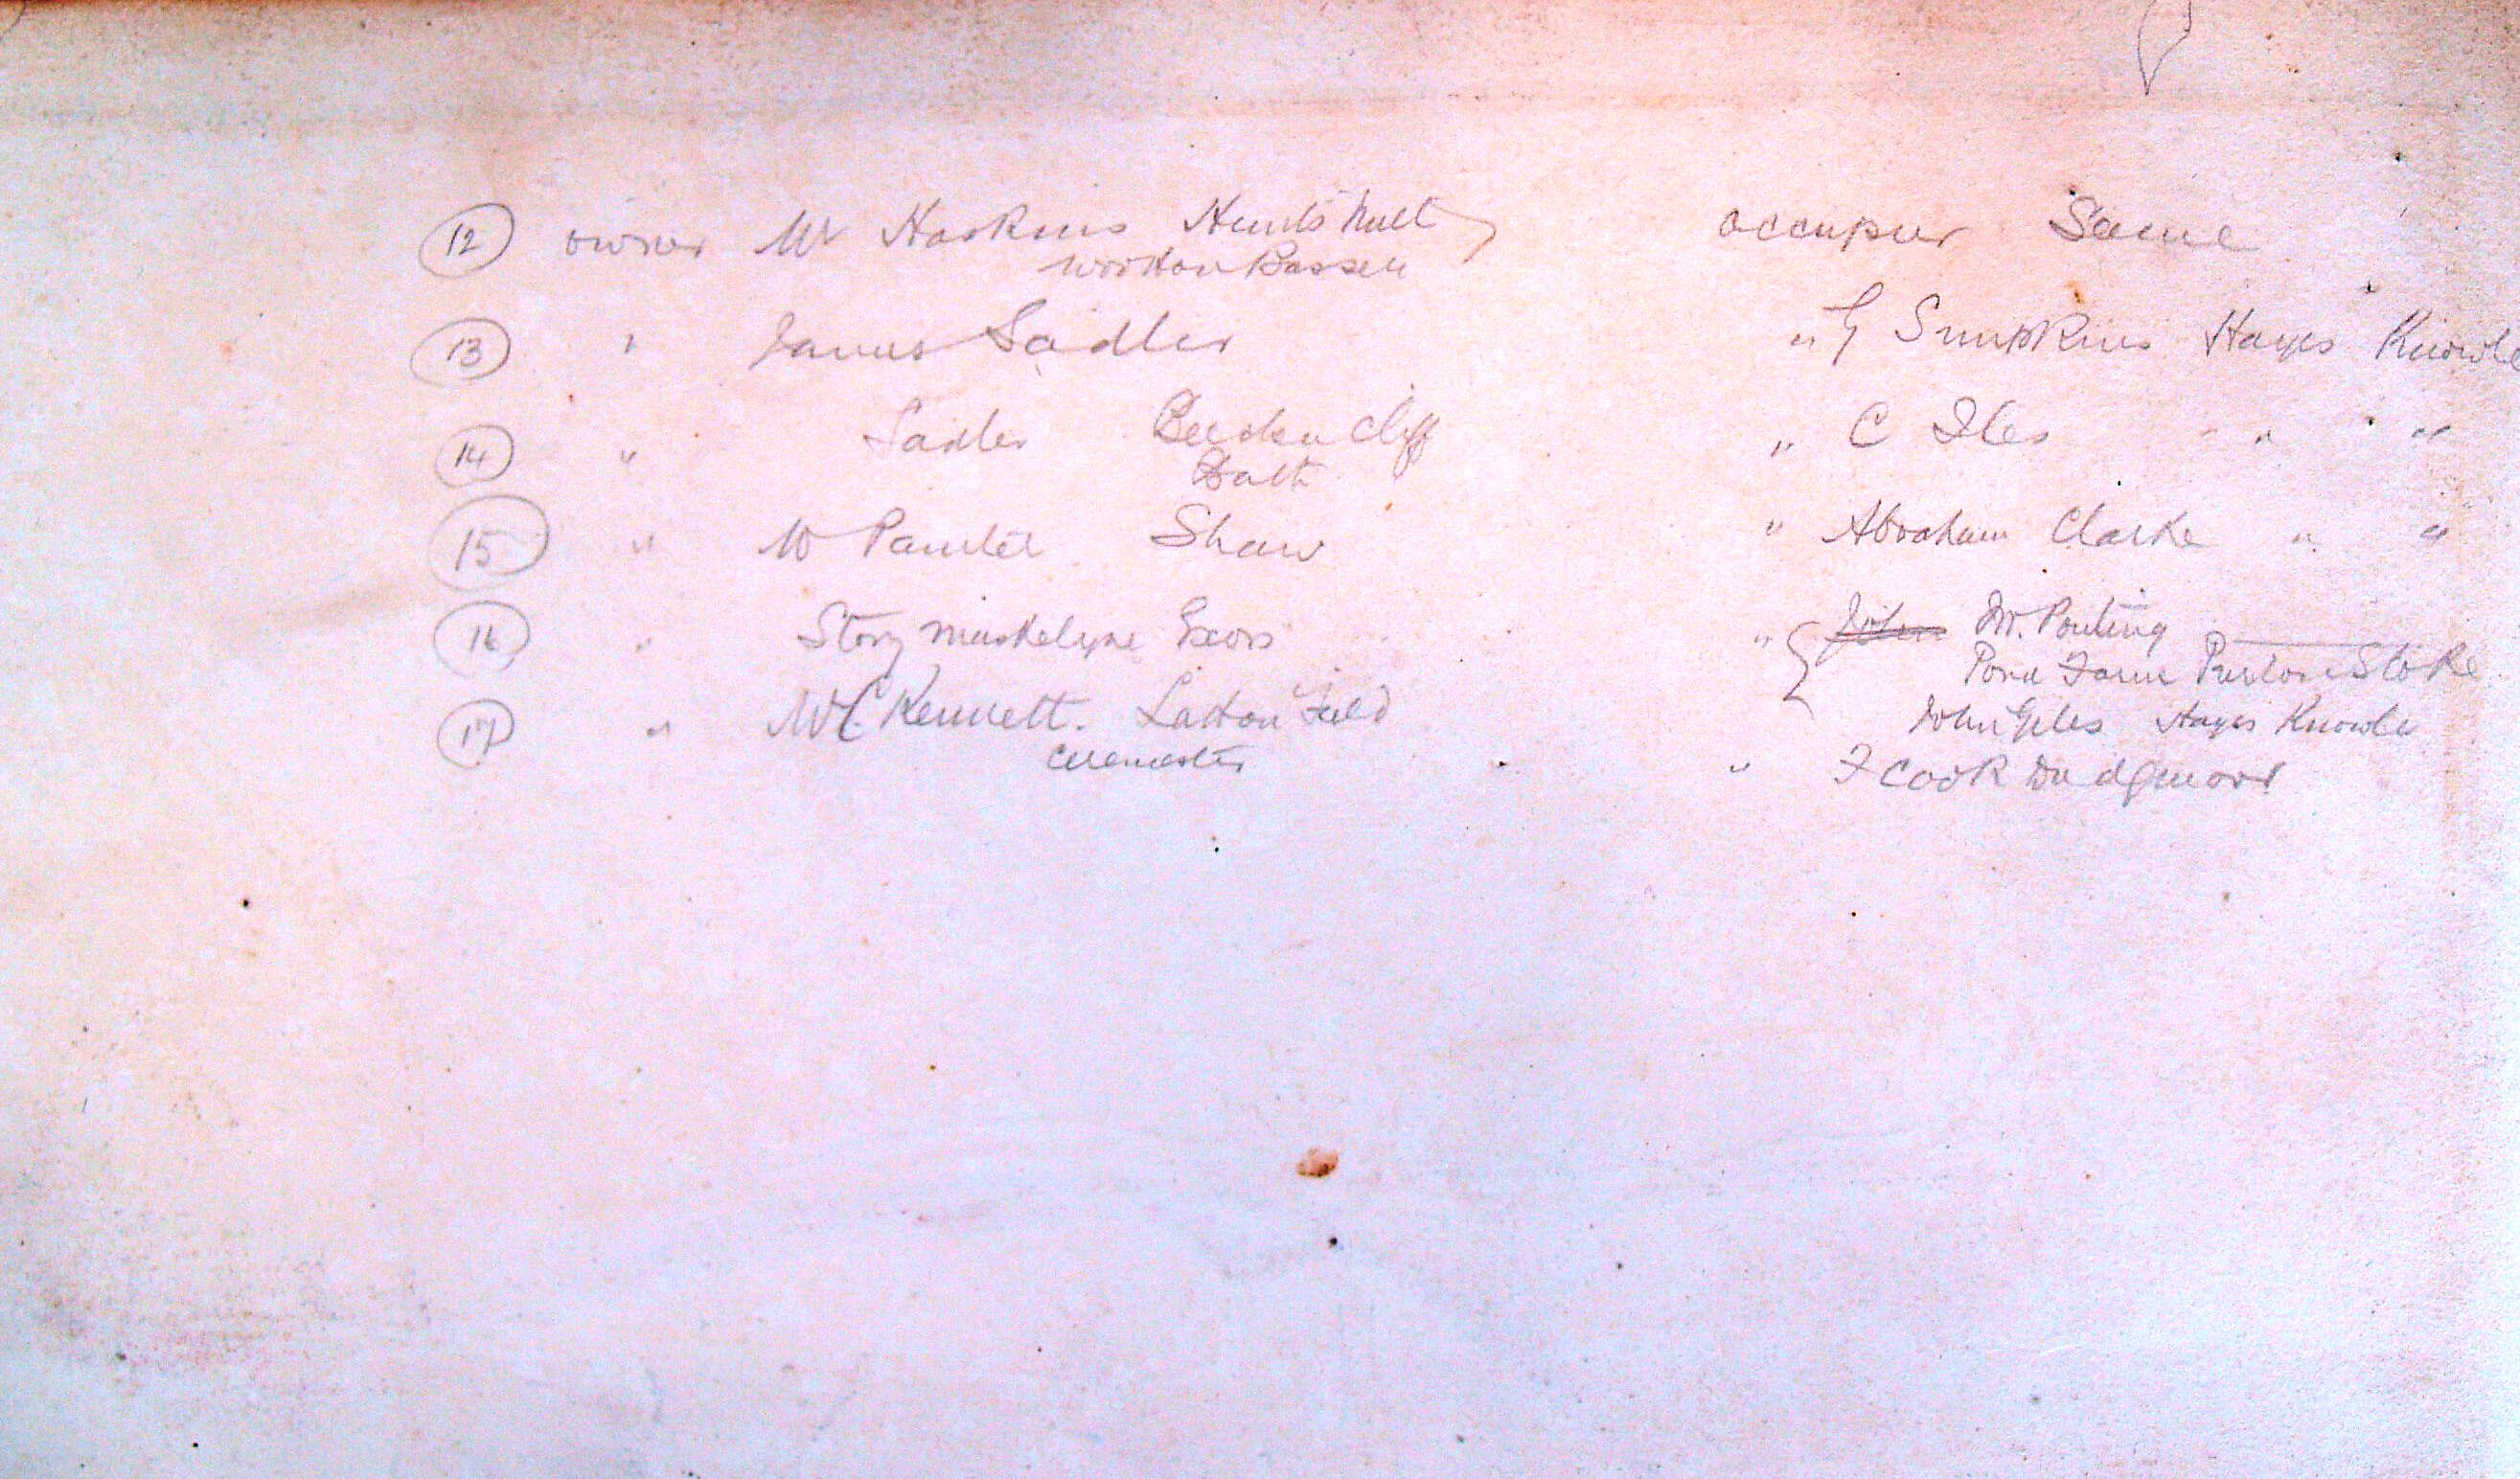 12 owner Mr Haskins Hunts Mill occupier Same
Wootton Bassett
13 " James Sadler " G Simpkins Hayes Knowle
14 " Sadler Beechen Cliff " C Iles " "
Bath
15 " W Painter Shaw " Abraham Clarke " "
16 " Story Maskelyne Exors " John Mr. Ponting
Pond Farm Purton Stoke
17 " W C Kennett. Field John Giles Hayes Knowle
Cirencester " F Cook Dudgmoor